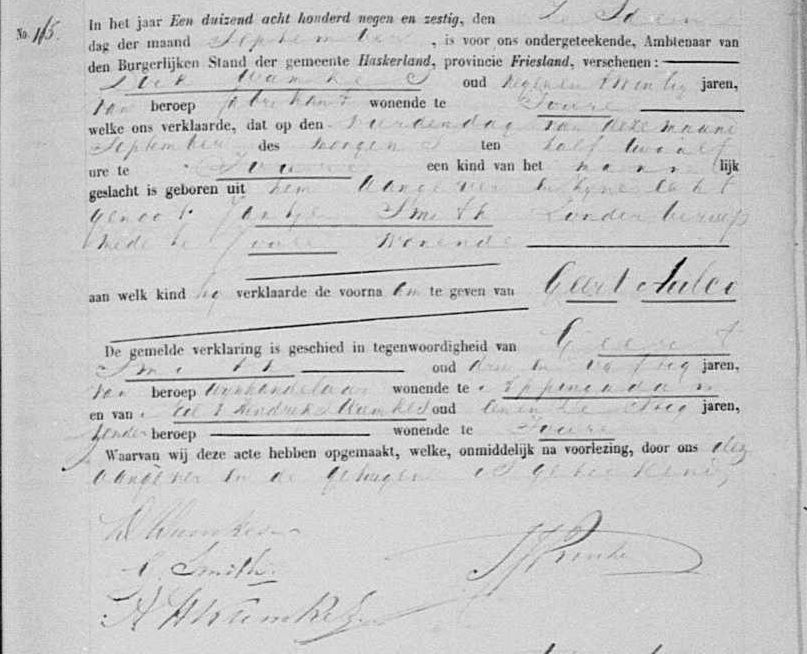 No. 115.
In het jaar Een duizend acht honderd negen en zestig, den
dag der maand September, is voor ons ondergeteekende, Ambtenaar van
den Burgerlijken Stand der gemeente Haskerland, provincie Friesland, verschenen:
Wumkes oud negen en twintig jaren,
van beroep fabrikant wonende te Joure
welke ons verklaarde, dat op den vierden dag van deze maand
September des morgens ten half twaalf
ure te Joure een kind van het mannlijk
geslacht is geboren uit hem aangever en zijne echt
genoot Jantje Smith zonder beroep
mede te Joure wonende
aan welk kind hij verklaarde de voornaam te geven van Geert Aalco
De gemelde verklaring is geschied in tegenwoordigheid van Geert
Smith oud drie en vijftig jaren,
van beroep wijnhandelaar wonende te Eppingadam
en van Hendriks Wumkes oud een en zestig jaren,
zonder beroep wonende te Joure
Waarvan wij deze acte hebben opgemaakt, welke, onmiddelijk na voorlezing, door ons dez
aangever en de getuigen is geteekend,
D Wumkes
G. Smith.
A H Wumkes